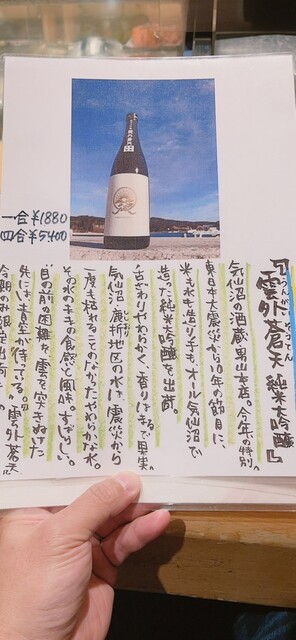 一合 ¥1880
四合 ¥5400
うんがいそうてん
『雲外蒼天 純米大吟醸』
気仙沼の酒蔵・男山本店。今年の特別。
東日本大震災から10年の節目に、
米も水も造り手もオール気仙沼で
造った純米大吟醸を出荷。
口ざわりやわらかく、香りはまるで果実。
気仙沼 鹿折地区の水は、震災から
一度も揺れることのなかったやわらかな水。
その水の
食感と風味。すばらしい。
"目の前の困難を雲を突きぬけた
先には、青空が待ってる。"『雲外蒼天』
今期のみ限定出荷